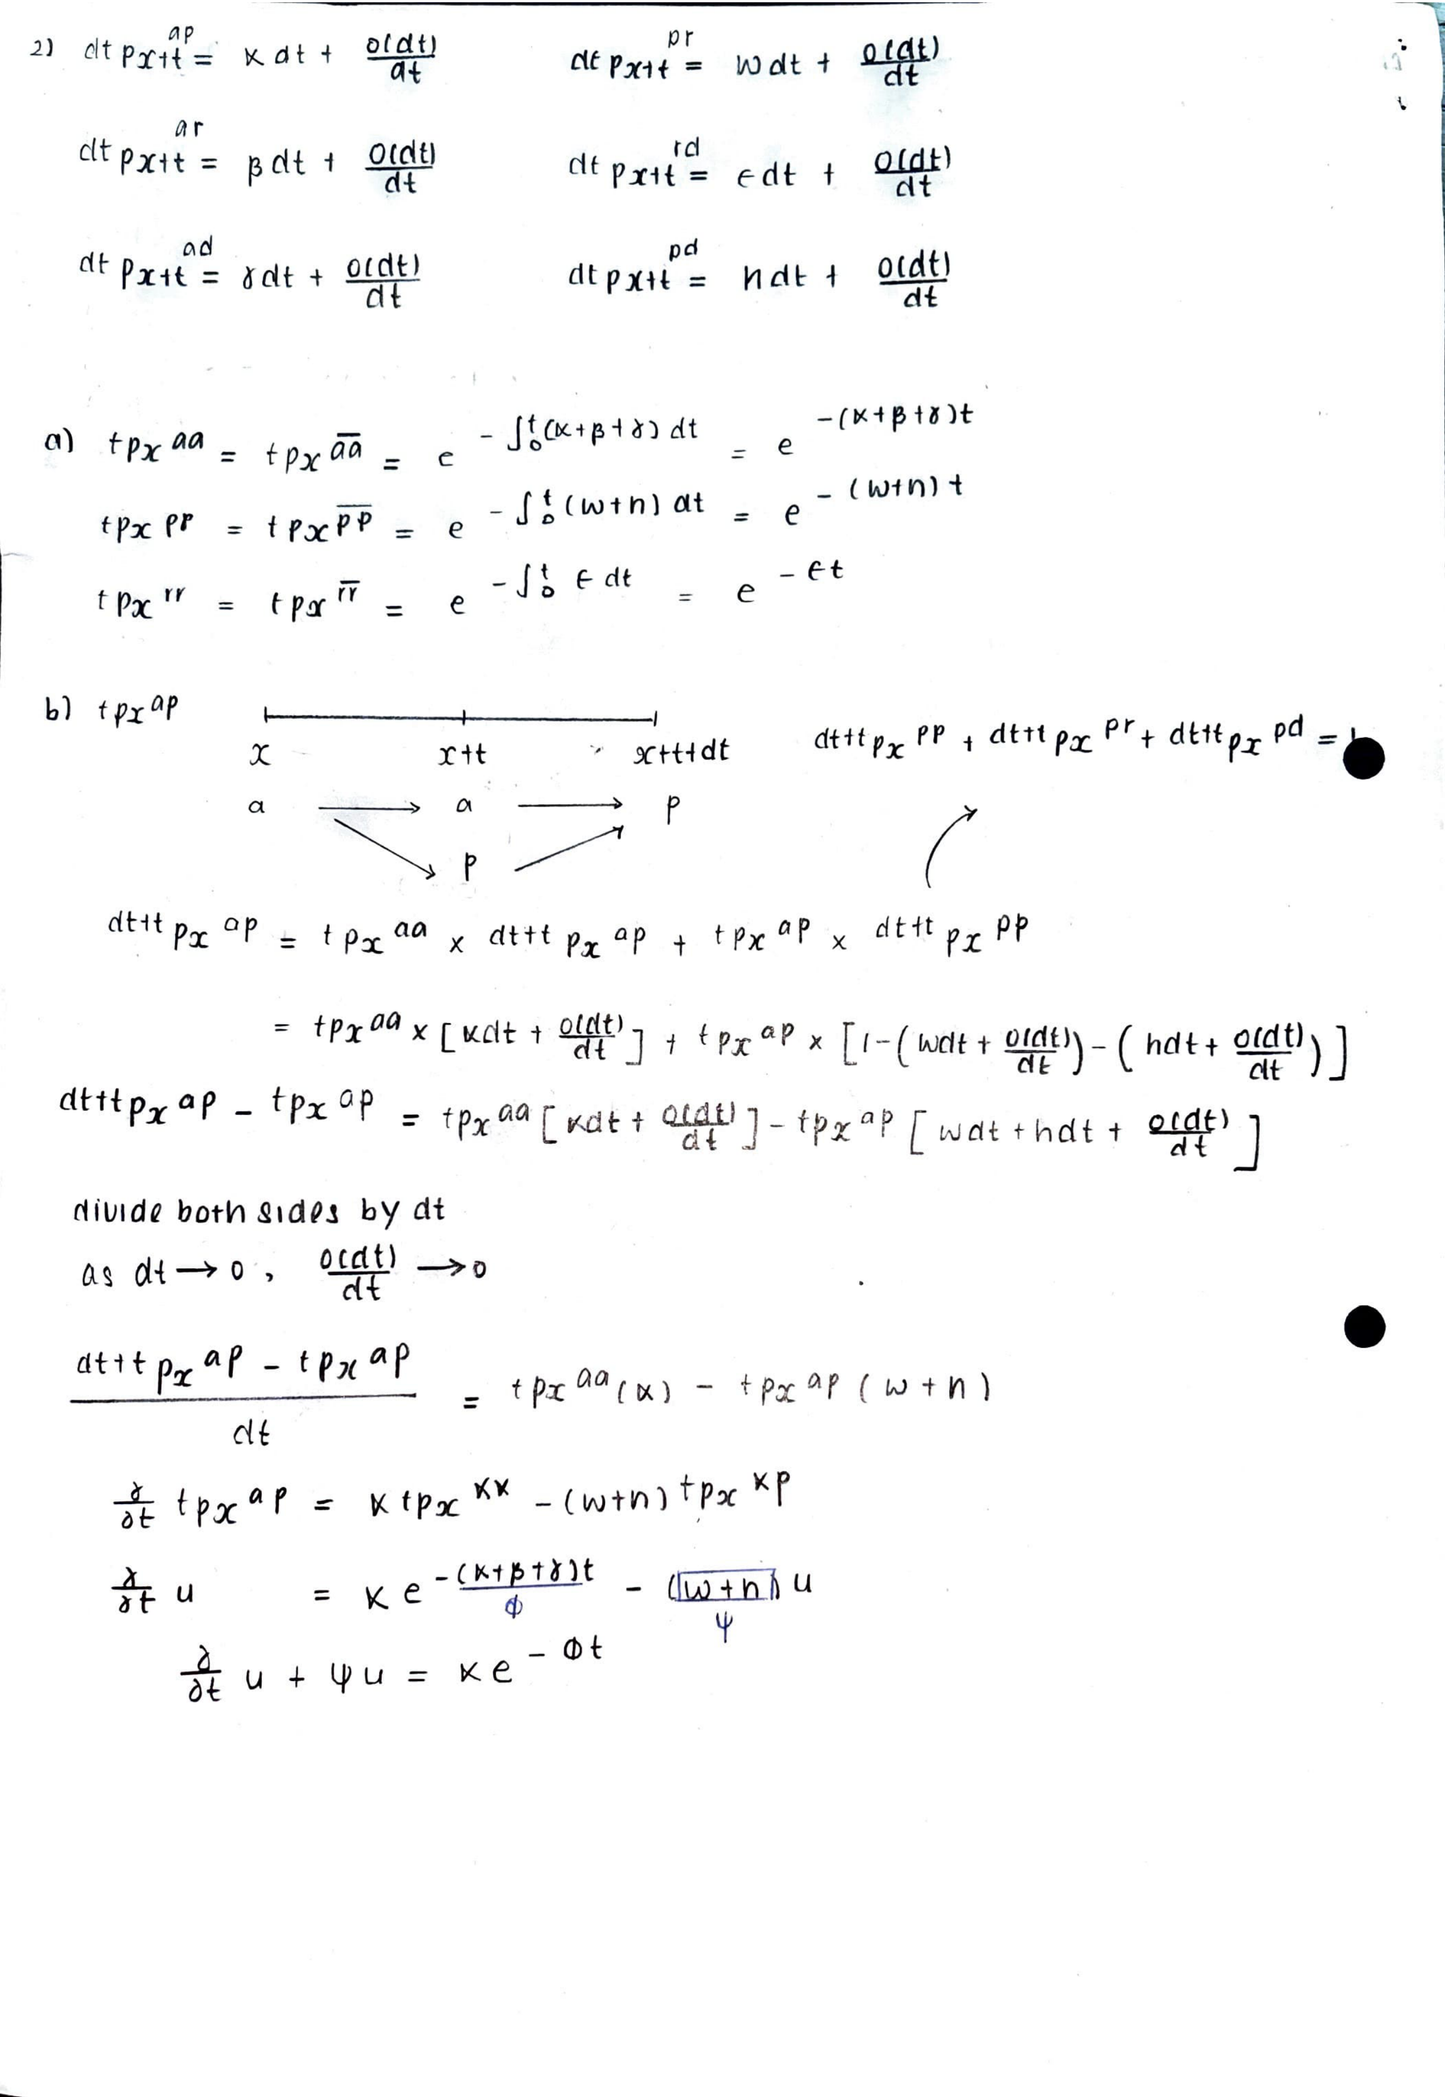 2) dt p x+t ap = α dt + o(dt)/dt    dt p x+t pr = w dt + o(dt)/dt
dt p x+t ar = β dt + o(dt)/dt    dt p x+t rd = ϵ dt + o(dt)/dt
dt p x+t ad = γ dt + o(dt)/dt    dt p x+t pd = n dt + o(dt)/dt
a) t p x aa = t p x a̅a̅ = e -∫₀ᵗ(α+β+γ) dt = e -(α+β+γ)t
t p x pr = t p x p̅p̅ = e -∫₀ᵗ(w+n) dt = e -(w+n)t
t p x rr = t p x r̅r̅ = e -∫₀ᵗ ϵ dt = e -ϵt
b) t p x ap
x    x+t    x+t+dt    dt+t p x pp + dt+t p x pr + dt+t p x pd =
a → a → p
p
dt+t p x ap = t p x aa × dt+t p x ap + t p x ap × dt+t p x pp
= t p x aa × [αdt + o(dt)/dt] + t p x ap × [1-(wdt + o(dt)/dt) - (ndt + o(dt)/dt)]
dt+t p x ap - t p x ap = t p x aa [αdt + o(dt)/dt] - t p x ap [wdt + ndt + o(dt)/dt]
divide both sides by dt
as dt → 0, o(dt)/dt → 0
dt+t p x ap - t p x ap / dt = t p x aa (α) - t p x ap (w+n)
∂/∂t t p x ap = α t p x αα - (w+n) t p x αp
∂/∂t u = α e -(α+β+γ)t - (w+n) u
ϕ    ψ
∂/∂t u + ψu = α e -ϕt